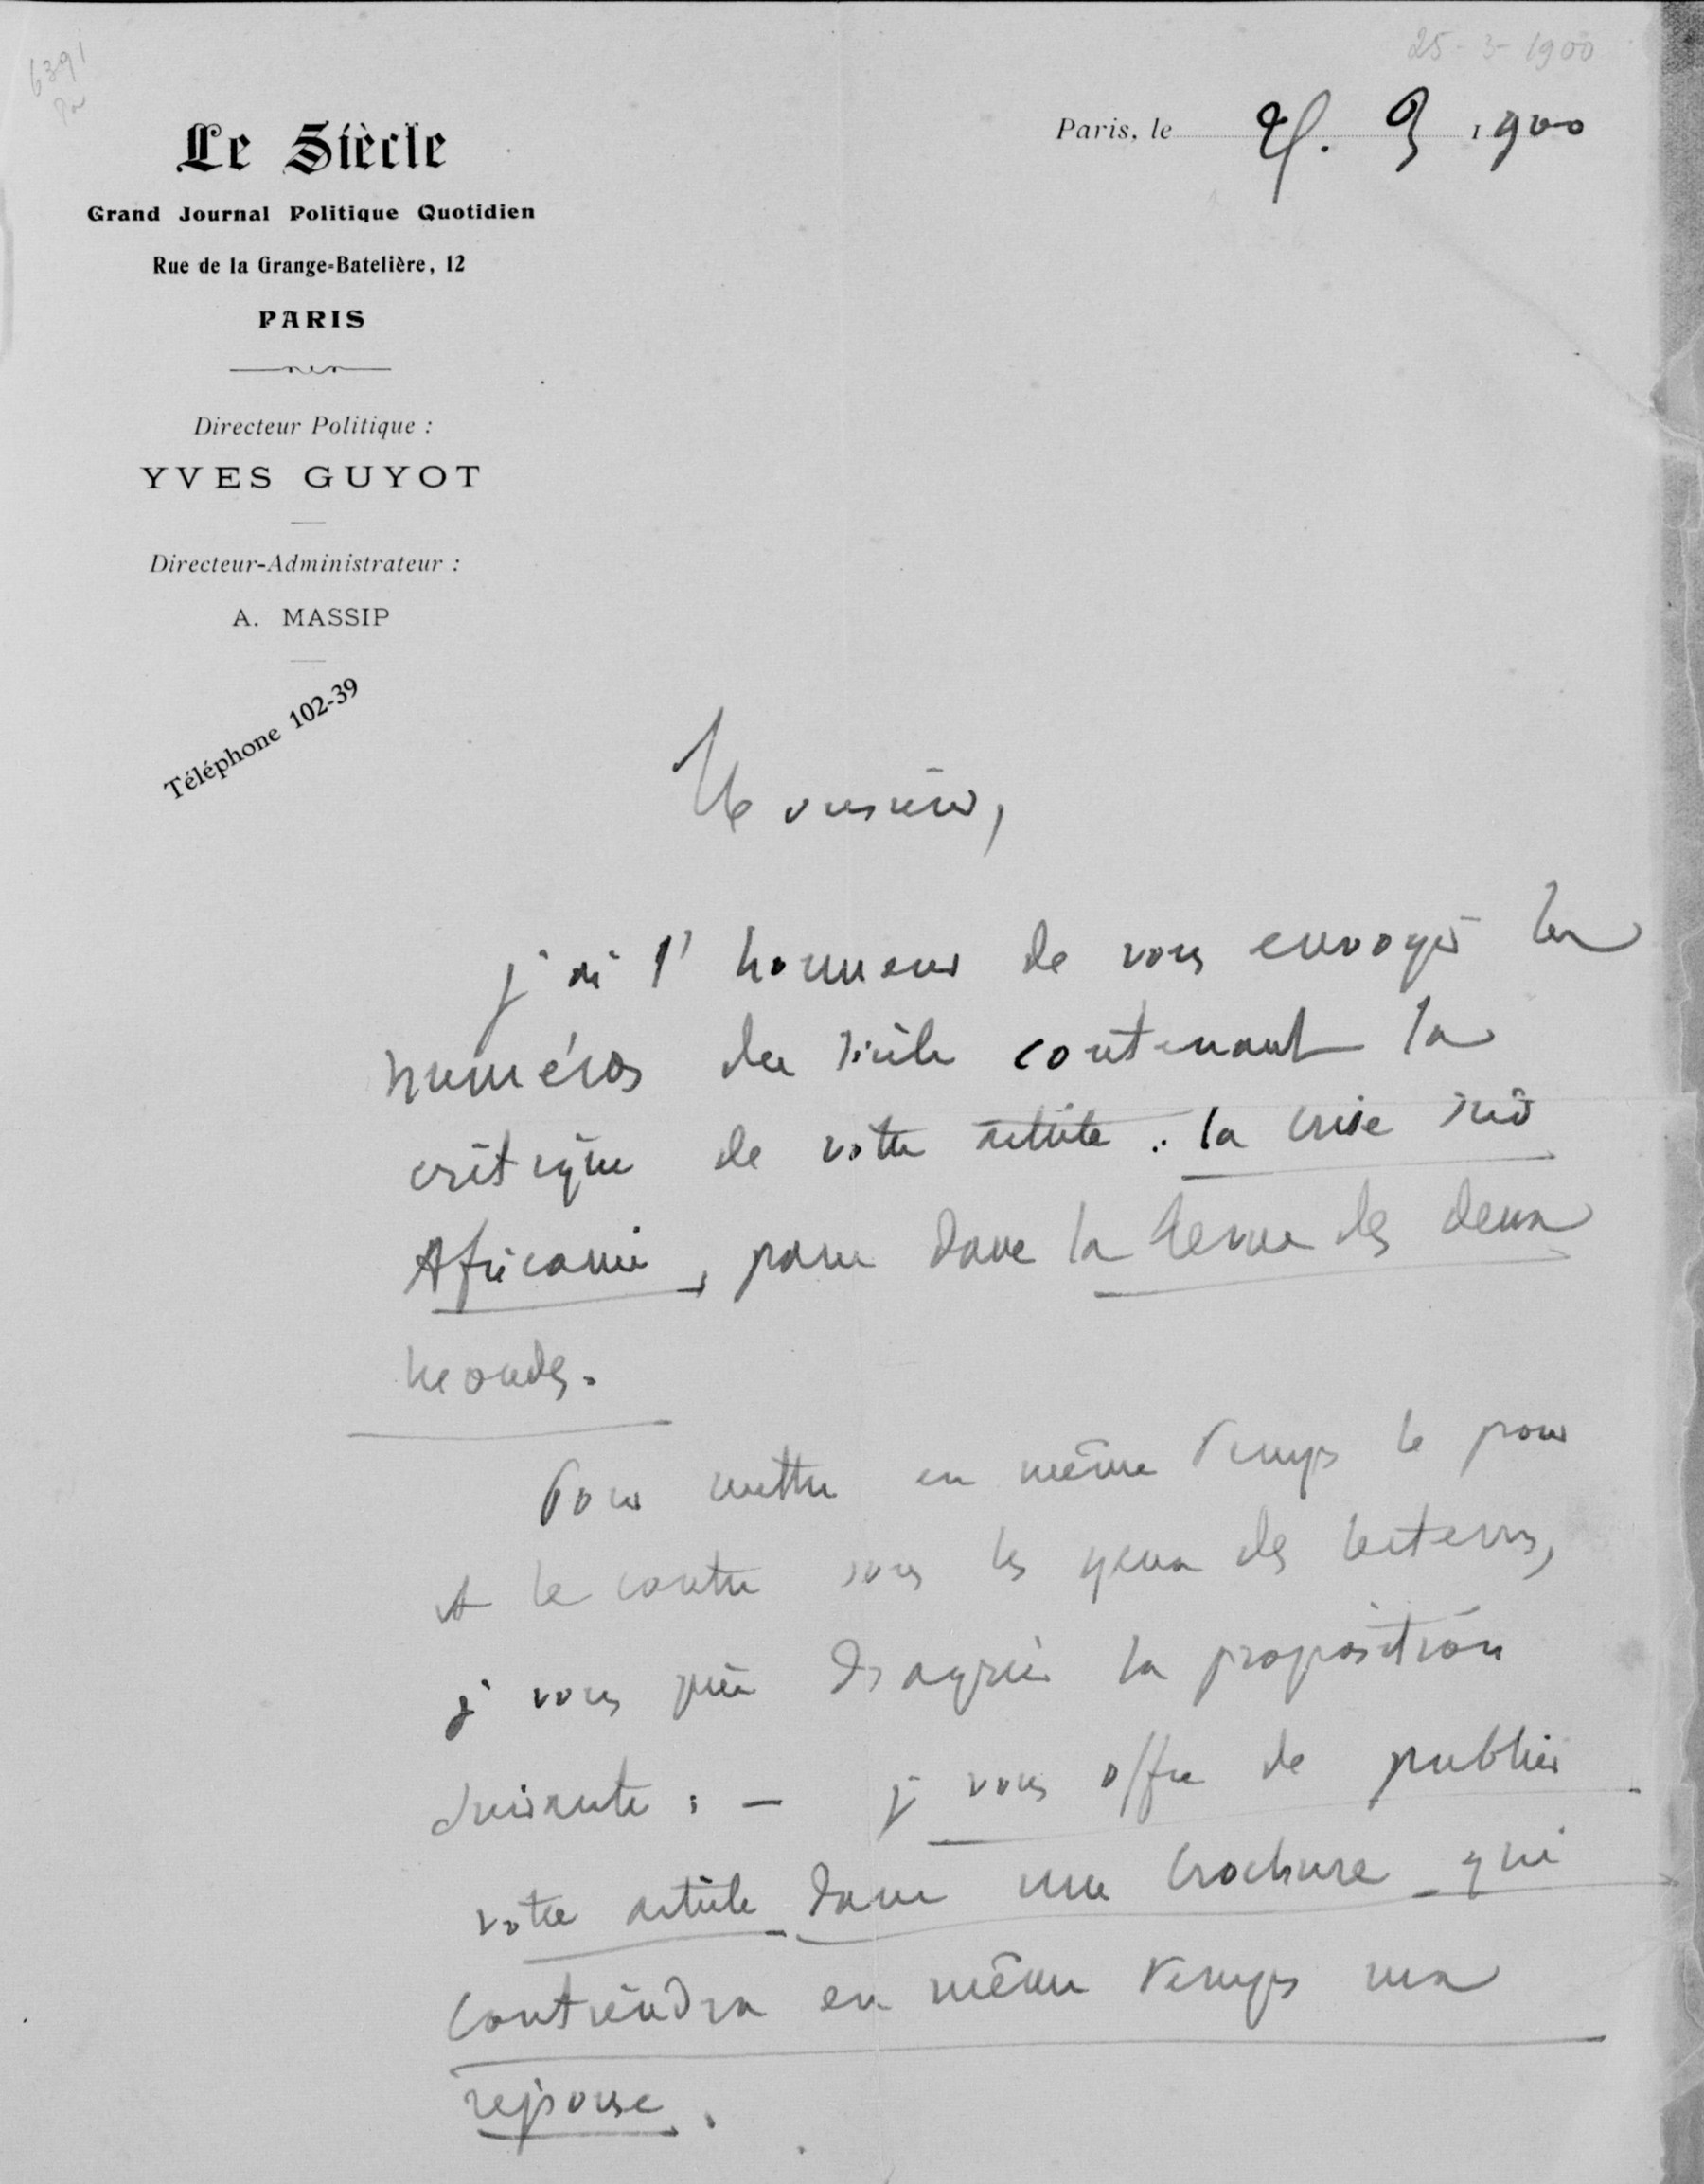 6391
25-3-1900
Le Siècle
Grand Journal Politique Quotidien
Rue de la Grange-Batelière, 12
PARIS
Paris, le 25. 3 1900
Directeur Politique :
YVES GUYOT
Directeur-Administrateur :
A. MASSIP
Téléphone 102-39
Monsieur,
j'ai l'honneur de vous envoyer les
numéros du Siècle contenant la
critique de votre article : la Crise Sud
Africaine, paru dans la Revue des deux
Mondes.
Pour mettre en même temps le pour
et le contre sous les yeux des lecteurs,
je vous prie d'agréer la proposition
suivante : — je vous offre de publier
votre article dans une brochure qui
contiendra en même temps ma
réponse.